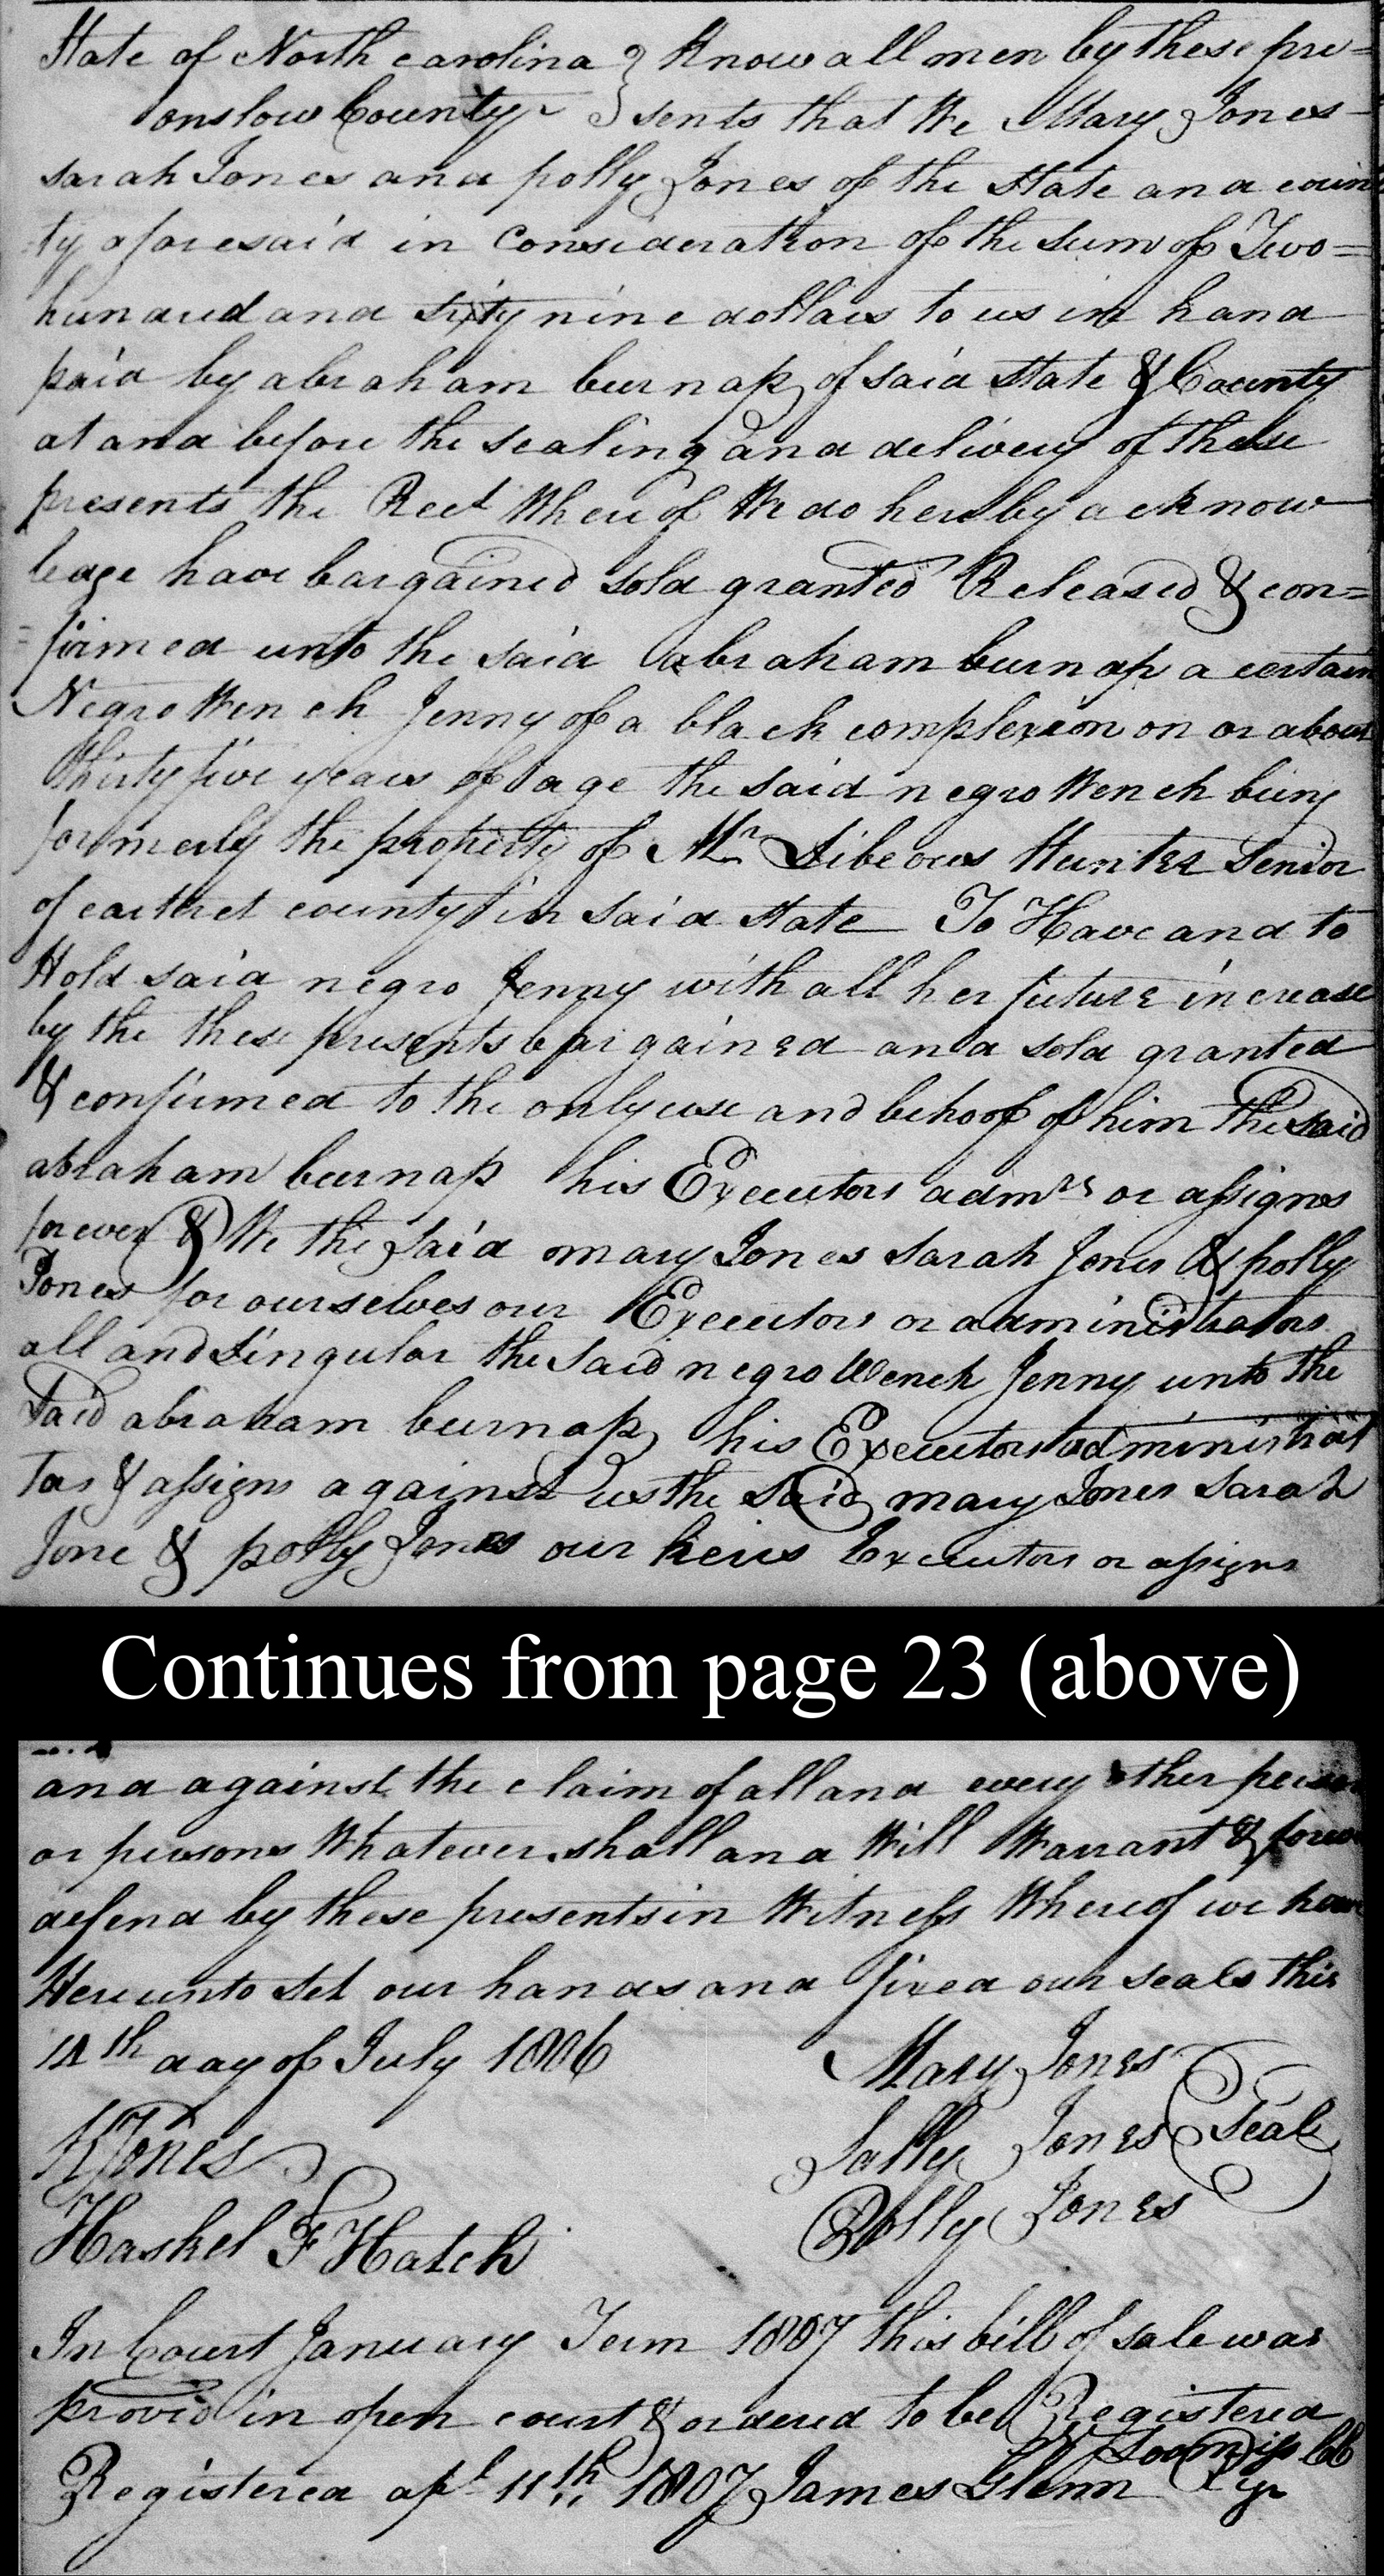 State of North carolina } Know all men by these pre=
onslow County } sents that We Mary Jones
sarah Jones and polly Jones of the State and coun
ty aforesaid in Consideration of the sum of Two=
hundred and sixty nine dollars to us in hand
paid by abraham burnap of said State & County
at and before the sealing and delivery of these
presents the Rect Whereof We do hereby acknow
ledge have bargained sold granted Released & con=
=firmed unto the said abraham burnap a certain
Negro Wench Jenny of a black complexion on or about
thirty five years of age the said negro Wench being
formerly the property of Mr Libeous Hunter Senior
of cartret county in said State To Have and to
Hold said negro Jenny with all her future increase
by the these presents bargained and sold granted
& confirmed to the only use and behoof of him the said
abraham burnap his Executors admrs or assigns
forever & We the said mary Jones sarah Jones & polly
Jones for ourselves our Executors or administrators
all and singular the said negro Wench Jenny unto the
said abraham burnap his Executors administrat
tors & assigns against us the said mary Jones Sarah
Jone & polly Jones our heirs Executors or assigns
Continues from page 23 (above)
and against the claim of all and every other person
or persons Whatever shall and Will Warrant &
defend by these presents in Witness Whereof we have
Hereunto set our hands and fixed our seals this
day of July 1806
Mary Jones
Sally Jones Seal
Polly Jones
K Jones
Haskel F Hatch
In Court January Term 1807 this bill of sale was
provid in open court & ordered to be Registered
Registered apl 11th 1807 James Glenn Regr